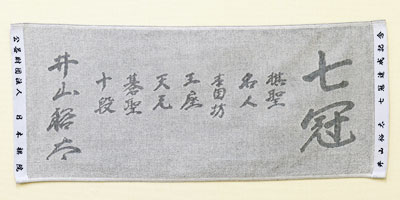 七冠
棋聖
名人
本因坊
王座
天元
碁聖
十段
井山裕太
公益財団法人 日本棋院